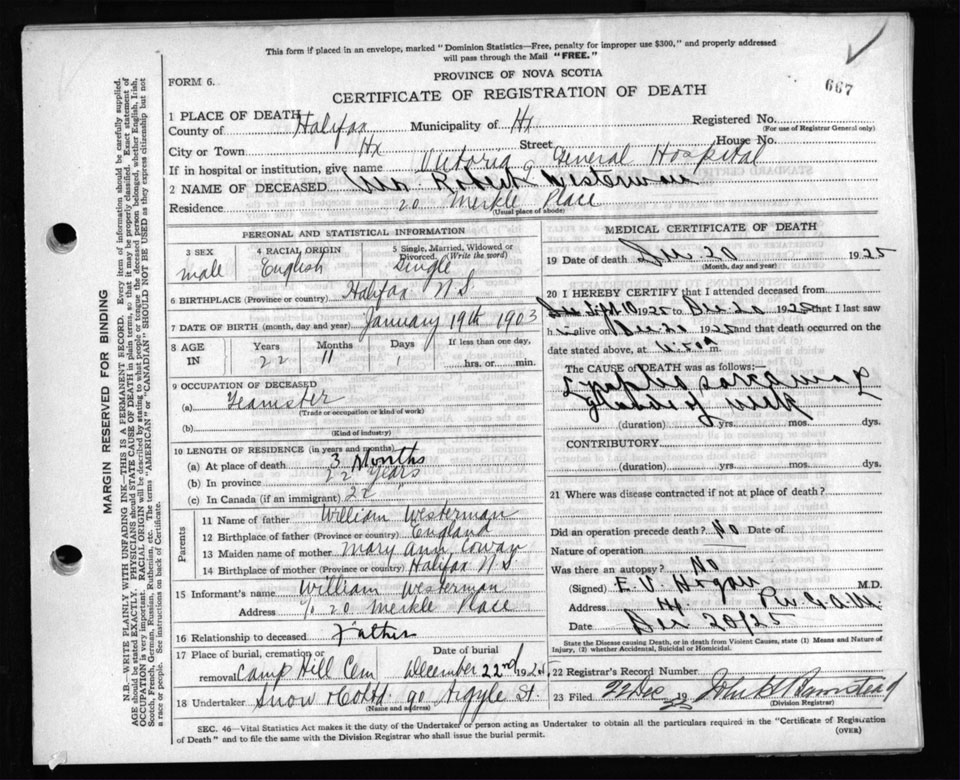 This form if placed in an envelope, marked "Dominion Statistics—Free, penalty for improper use $300," and properly addressed
will pass through the Mail "FREE."
667
FORM 6.
PROVINCE OF NOVA SCOTIA
CERTIFICATE OF REGISTRATION OF DEATH
1 PLACE OF DEATH
County of Halifax Municipality of Hx Registered No.
(For use of Registrar General only)
City or Town Hx Street House No.
If in hospital or institution, give name Victoria General Hospital
2 NAME OF DECEASED Mr Robert Westerman
Residence 20 Merkle Place
(Usual place of abode)
PERSONAL AND STATISTICAL INFORMATION
3 SEX male
4 RACIAL ORIGIN English
5 Single, Married, Widowed or Divorced (Write the word) Single
6 BIRTHPLACE (Province or country) Halifax N.S.
7 DATE OF BIRTH (month, day and year) January 19th 1903
8 AGE IN Years 22 Months 11 Days 1 If less than one day, hrs. or min.
9 OCCUPATION OF DECEASED
(a) Teamster
(Trade or occupation or kind of work)
(b)
(Kind of industry)
10 LENGTH OF RESIDENCE (in years and months)
(a) At place of death 3 Months
(b) In province 22 years
(c) In Canada (if an immigrant) 22
Parents
11 Name of father William Westerman
12 Birthplace of father (Province or country) England
13 Maiden name of mother Mary Ann Cowan
14 Birthplace of mother (Province or country) Halifax N S
15 Informant's name William Westerman
Address 20 Merkle Place
16 Relationship to deceased Father
17 Place of burial, cremation or removal Camp Hill Cem Date of burial December 22nd 1925
18 Undertaker Snow & Co Ltd 90 Argyle St.
(Name and address)
MEDICAL CERTIFICATE OF DEATH
19 Date of death Dec 20 1925
(Month, day and year)
20 I HEREBY CERTIFY that I attended deceased from
Sept 10 1925 to Dec 20 1925 that I last saw
h alive on Dec 20 1925 and that death occurred on
date stated above, at m
The CAUSE of DEATH was as follows:—
sarcoma of
glands of neck
(duration) yrs. mos. dys.
CONTRIBUTORY
(duration) yrs. mos. dys.
21 Where was disease contracted if not at place of death?
Did an operation precede death? No Date of
Nature of operation
Was there an autopsy? No
(Signed) E. V. Hogan M.D.
Address Hx
Date Dec 20/25
State the Disease causing Death, or in death from Violent Causes, state (1) Means and Nature of
Injury, (2) whether Accidental, Suicidal or Homicidal.
22 Registrar's Record Number
23 Filed 22 Dec 19
(Division Registrar)
SEC. 46—Vital Statistics Act makes it the duty of the Undertaker or person acting as Undertaker to obtain all the particulars required in the "Certificate of Registration
of Death" and to file the same with the Division Registrar who shall issue the burial permit. (OVER)
MARGIN RESERVED FOR BINDING
N.B.—WRITE PLAINLY WITH UNFADING INK—THIS IS A PERMANENT RECORD. Every item of information should be carefully supplied.
AGE should be stated EXACTLY. PHYSICIANS should STATE CAUSE OF DEATH in plain terms, so that it may be properly classified. Exact statement of
OCCUPATION is very important. RACIAL ORIGIN will be described by stating to what people or tongue the deceased person belonged, whether English, Irish,
Scotch, French, German, Russian, Ruthenian, etc. The terms "AMERICAN" or "CANADIAN" SHOULD NOT BE USED as they express citizenship but not
a race or people. See instructions on back of Certificate.